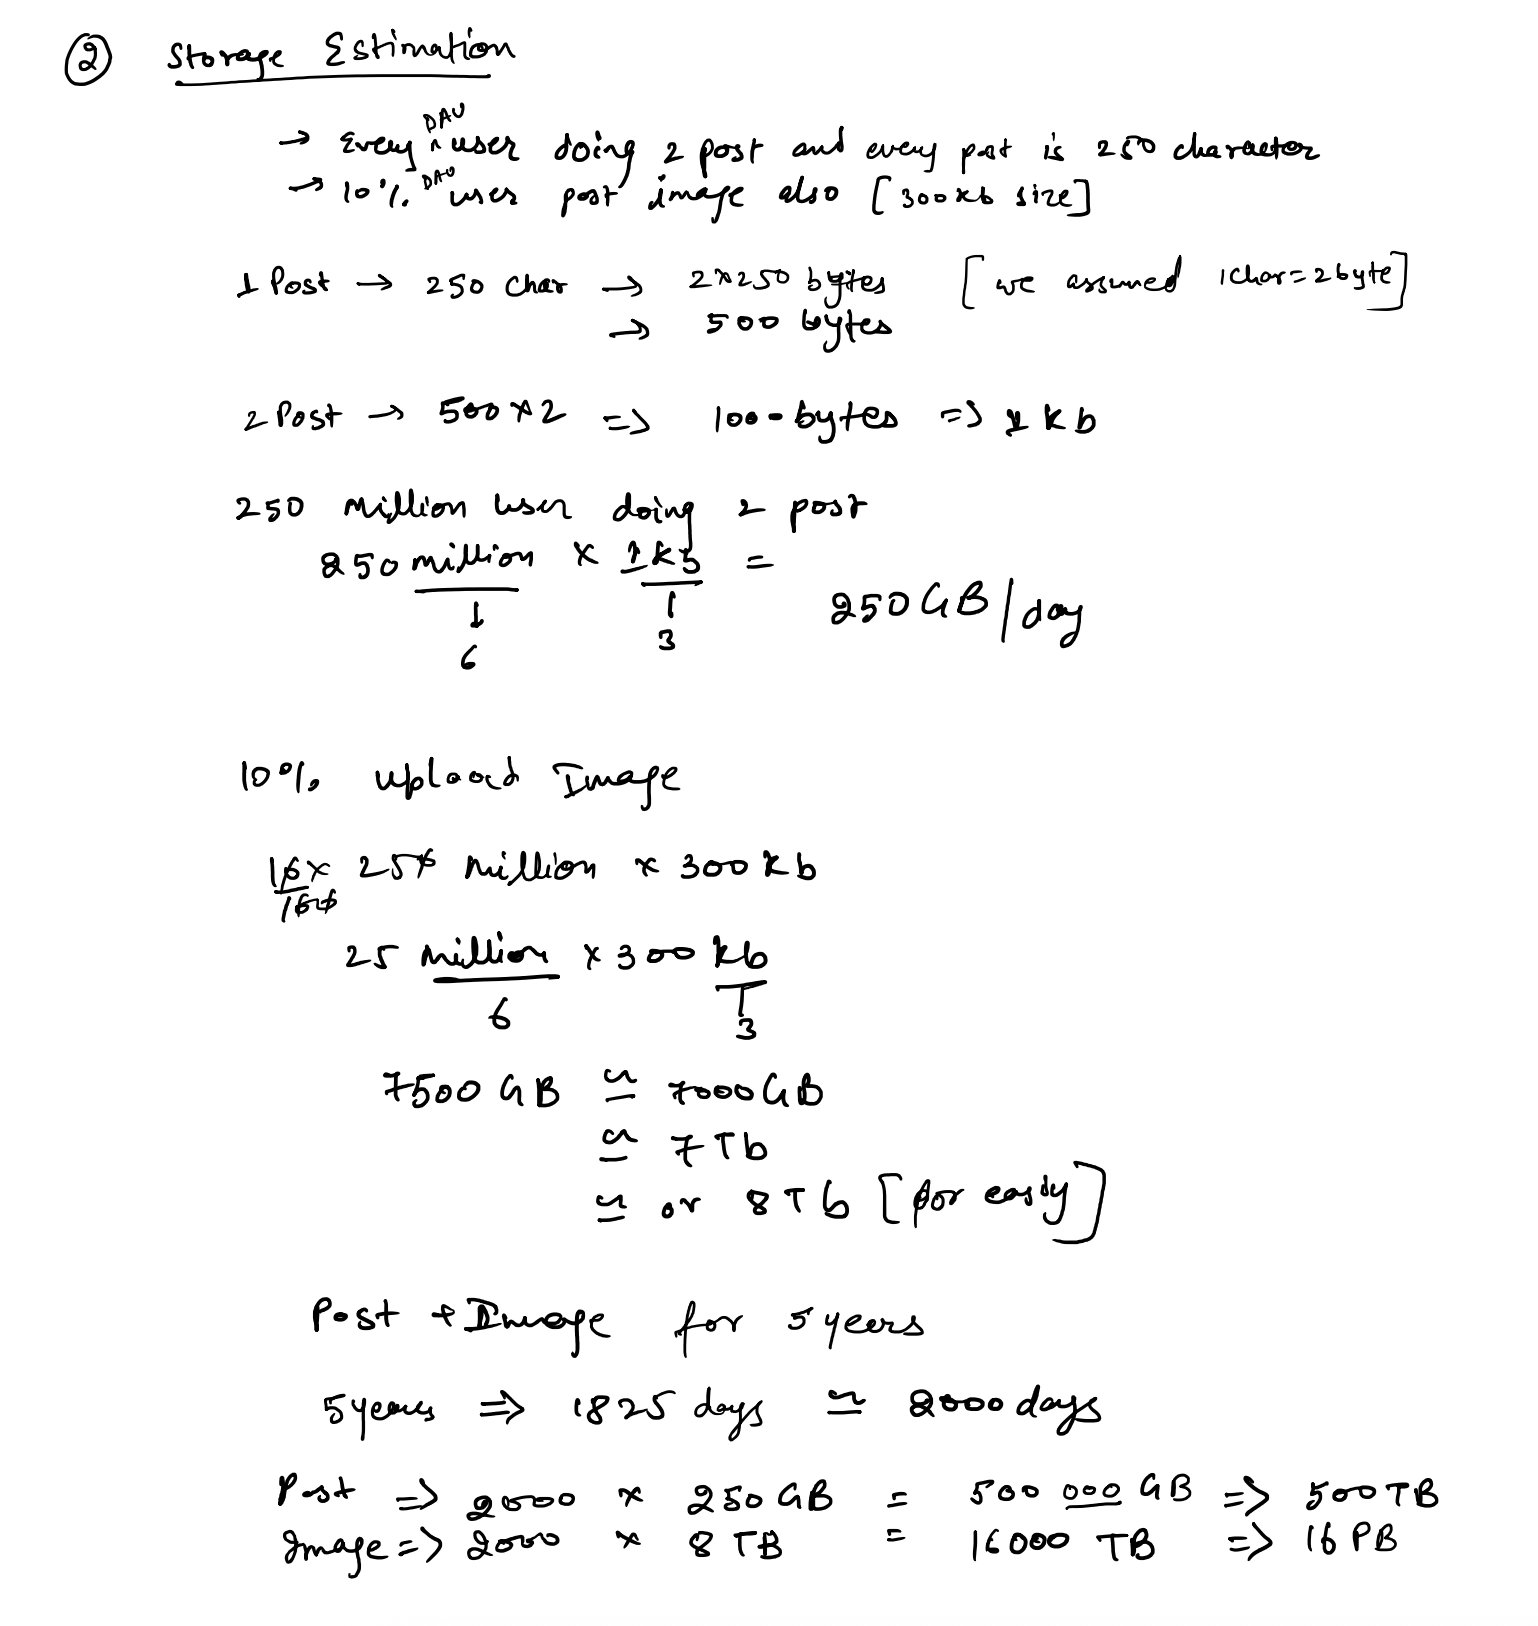 ② Storage Estimation
DAU
→ Every ^ user doing 2 post and every post is 250 character
→ 10% DAU user post image also [300kb size]
1 Post → 250 char → 2×250 bytes [we assumed 1char=2byte]
→ 500 bytes
2 Post → 500×2 => 1000 bytes => 1 kb
250 million user doing 2 post
250 million × 1kb =
250GB/day
6 3
10% upload Image
10/100 × 250 million × 300kb
25 million × 300 kb
6 3
7500 GB ≃ 7000GB
≃ 7Tb
≃ or 8Tb [for easly]
Post + Image for 5 years
5years => 1825 days ≃ 2000 days
Post => 2000 × 250 GB = 500 000 GB => 500TB
Image => 2000 × 8 TB = 16000 TB => 16 PB